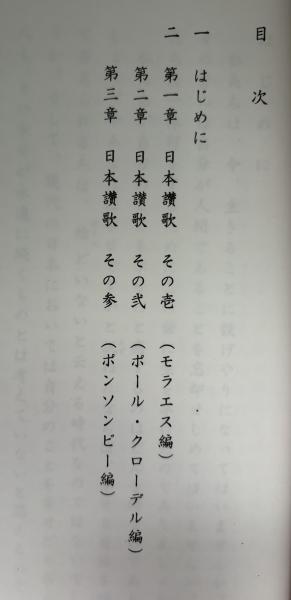 目次
一 はじめに
二 第一章 日本讃歌 その壱 (モラエス編)
第二章 日本讃歌 その弐 (ポール・クローデル編)
第三章 日本讃歌 その参 (ポンソンビー編)